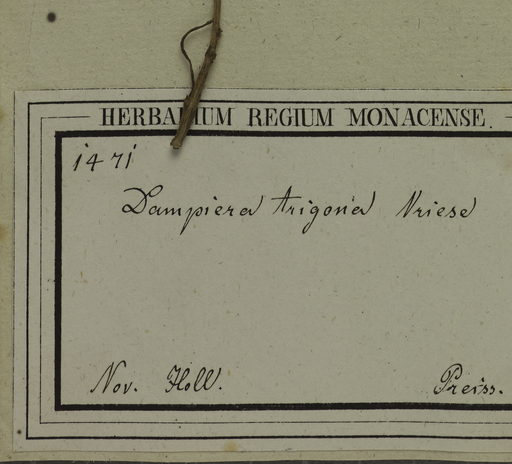 HERBARIUM REGIUM MONACENSE.
1471
Dampiera trigona Vriese
Nov. Holl. Preiss.